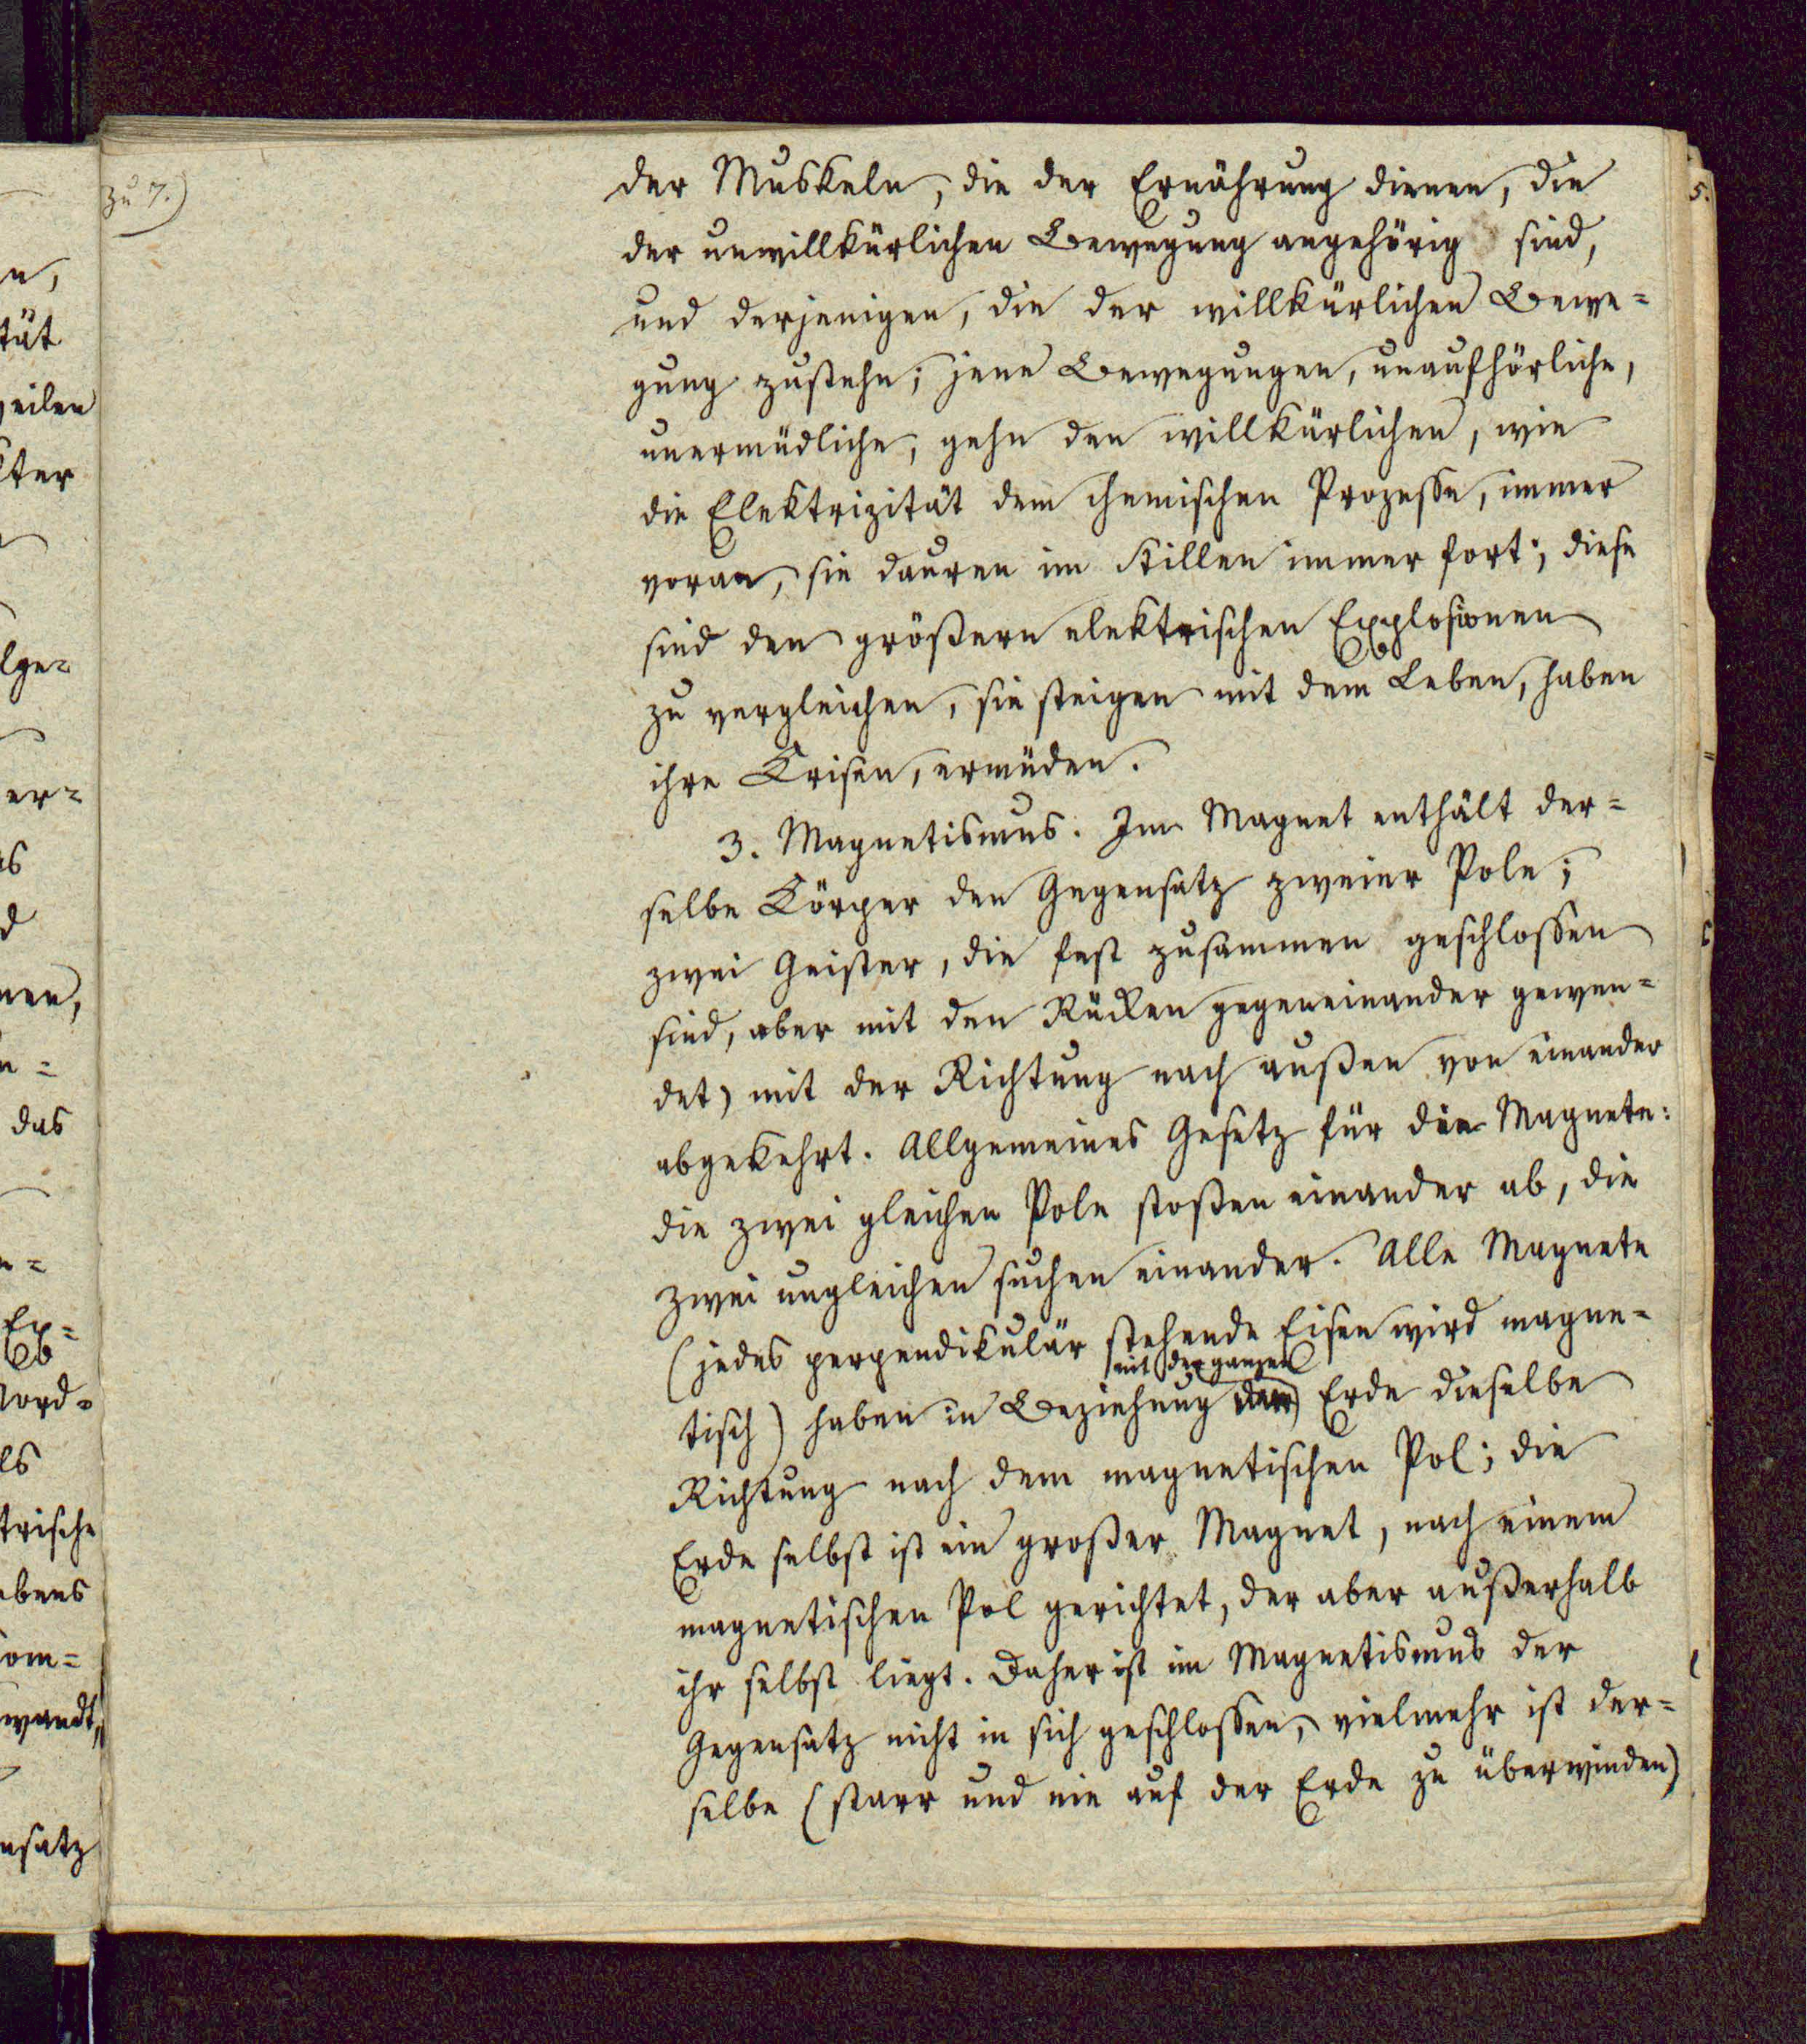 zu 7.)
der Muskeln, die der Ernährung dienen, die
der unwillkürlichen Bewegung angehörig sind,
und derjenigen, die der willkürlichen Bewe=
gung zustehn; jene Bewegungen, unaufhörliche,
unermüdliche, gehn den willkürlichen, wie
die Elektrizität dem chemischen Prozesse, immer
voran, sie dauren im Stillen immer fort; diese
sind den größern elektrischen Explosionen
zu vergleichen, sie steigen mit dem Leben, haben
ihre Crisen, ermüden.
3. Magnetismus. Im Magnet enthält der=
selbe Cörper den Gegensatz zweier Pole;
zwei Geister, die fest zusammen geschlossen
sind, aber mit den Rücken gegeneinander gewen=
det, mit der Richtung nach außen von einander
abgekehrt. Allgemeines Gesetz für die Magnete:
die zwei gleichen Pole stoßen einander ab, die
zwei ungleichen suchen einander. Alle Magnete
(jedes perpendikulär stehende Eisen wird magne=
mit der ganzen
tisch) haben in Beziehung Erde dieselbe
Richtung nach dem magnetischen Pol; die
Erde selbst ist ein großer Magnet, nach einem
magnetischen Pol gerichtet, der aber außerhalb
ihr selbst liegt. Daher ist im Magnetismus der
Gegensatz nicht in sich geschlossen, vielmehr ist der=
selbe (starr und nie auf der Erde zu überwinden)